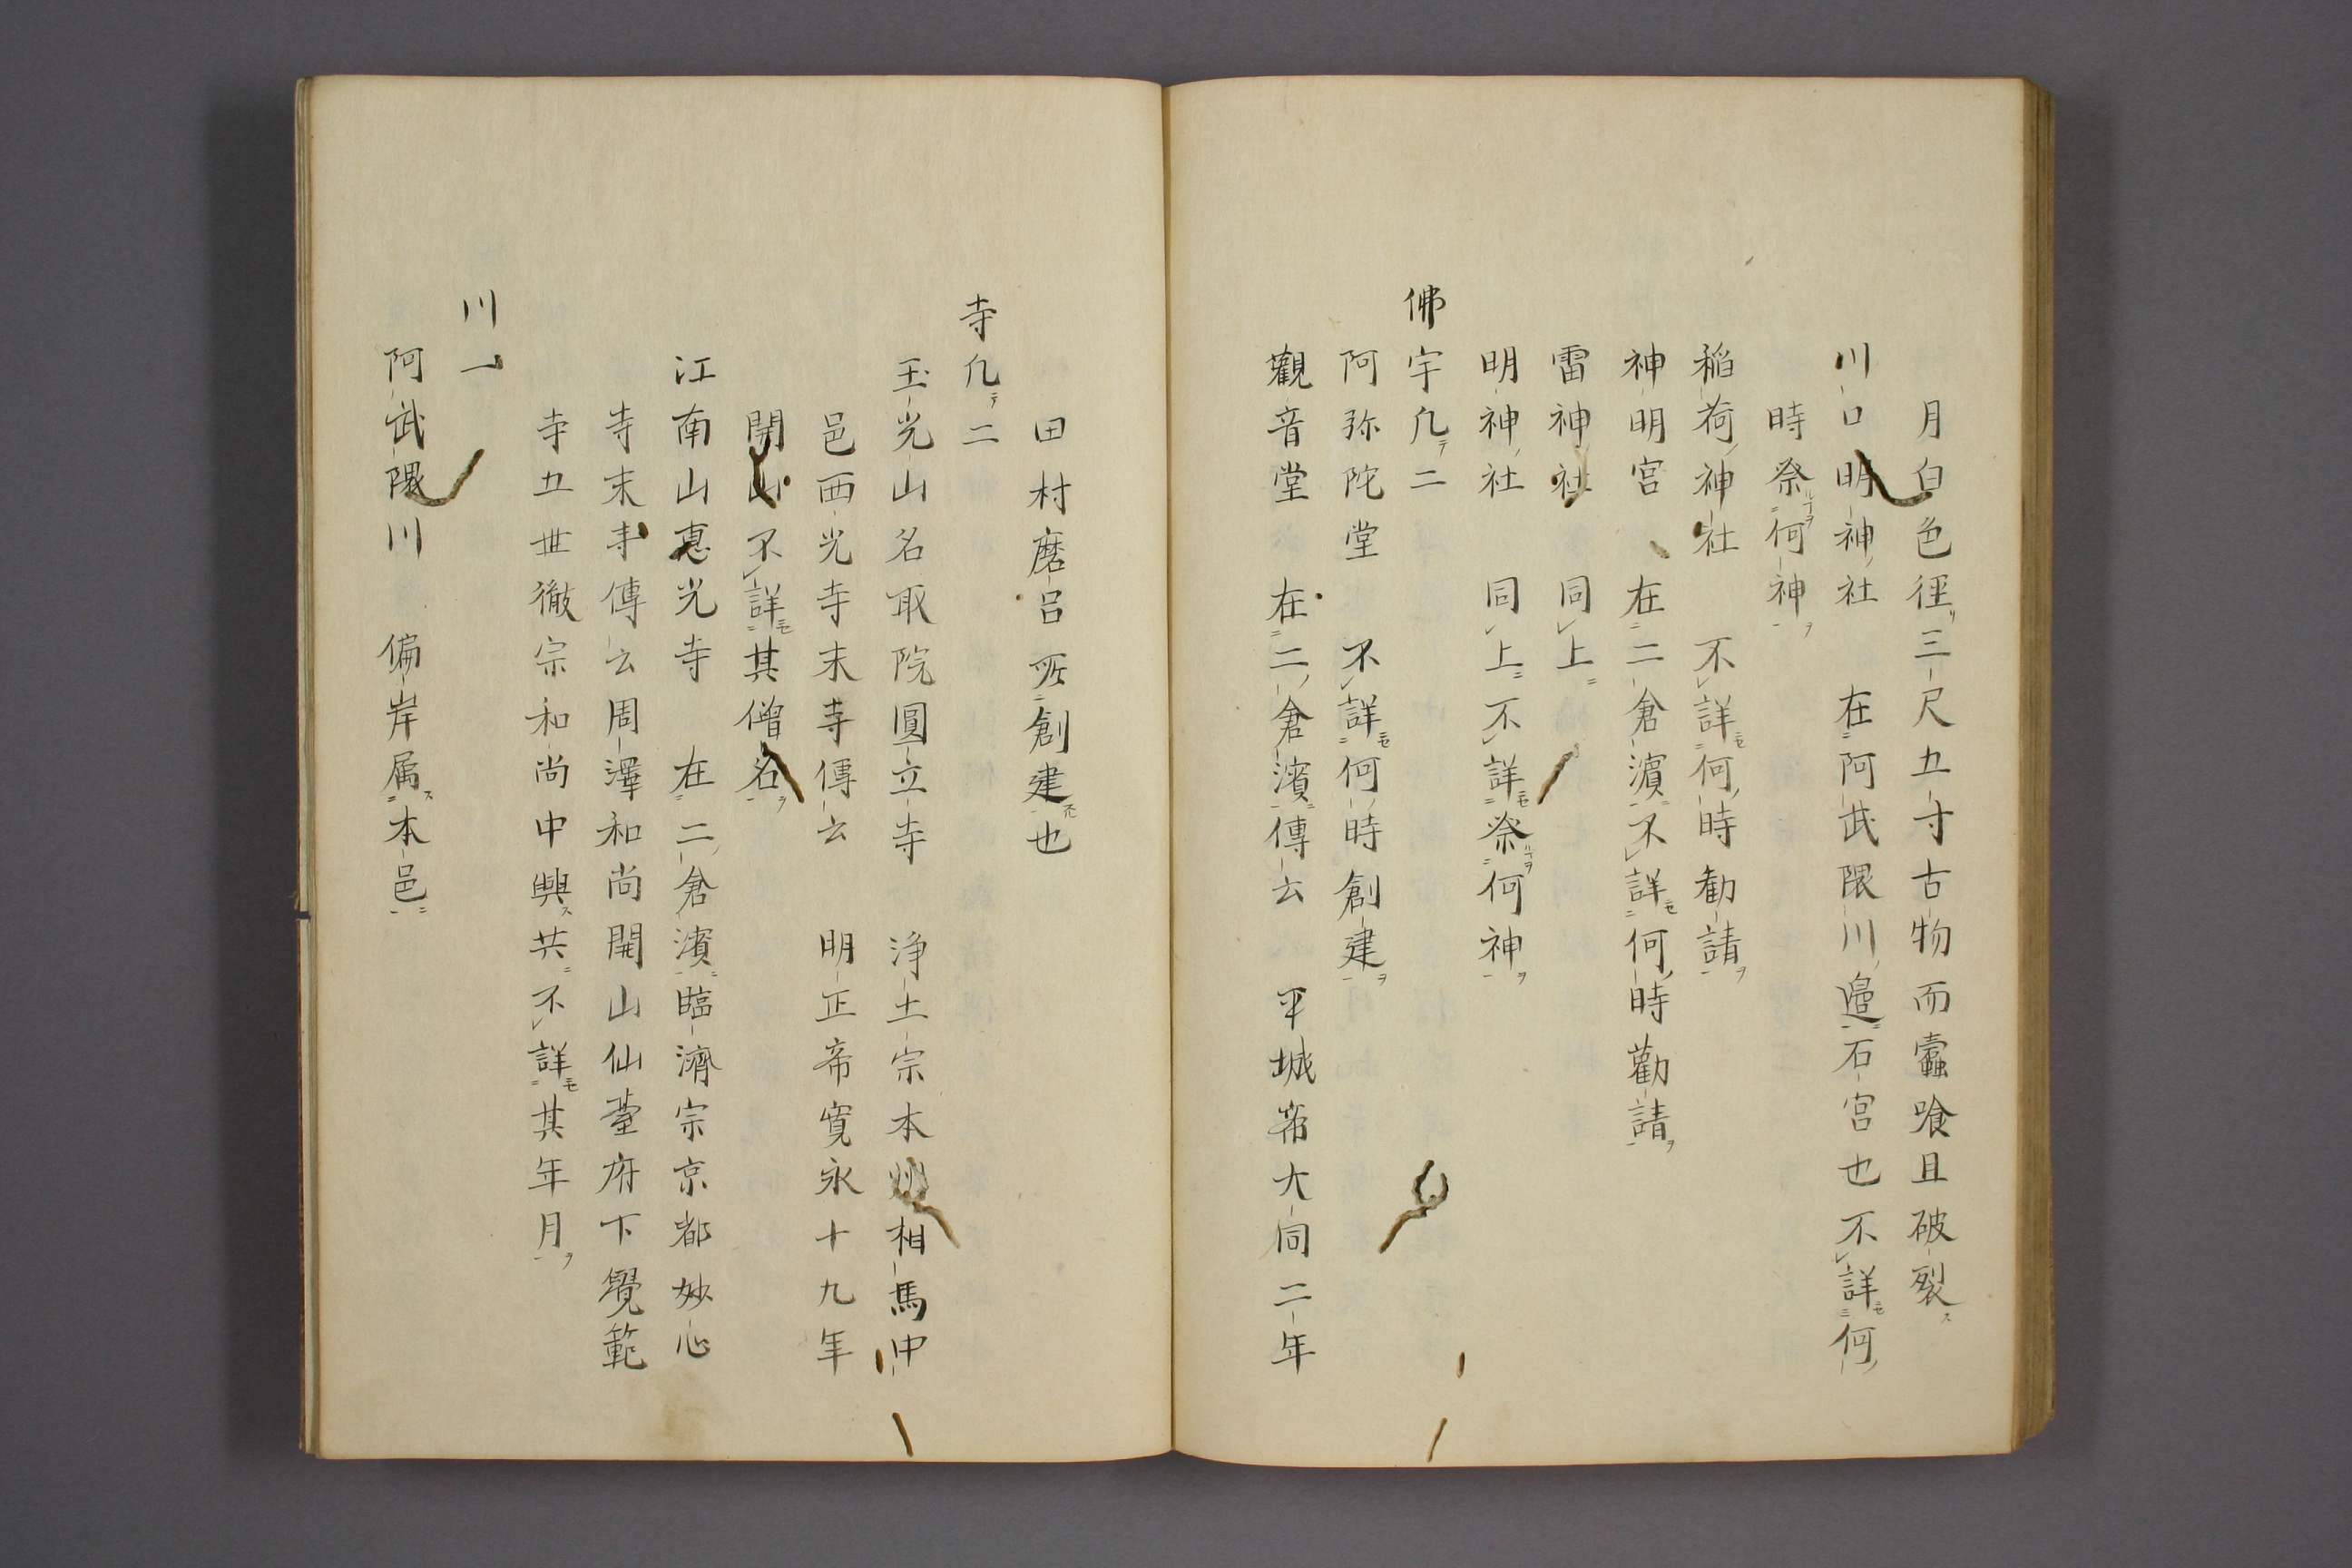 月白色徑三尺五寸古物而蠧喰且破裂
川口明神社　在阿武隈川邉石宮也不詳何
時祭何神
稲荷神社　不詳何時勧請
神明宮　在二倉濵不詳何時勸請
雷神社　同上
明神社　同上不詳祭何神
佛宇凢二
阿弥陀堂　不詳何時創建
觀音堂　在二倉濵傳云　平城帝大同二年
田村麿呂所創建也
寺凢二
玉光山名取院圓立寺　浄土宗本州相馬中
邑西光寺末寺傳云　明正帝寛永十九年
開山不詳其僧名
江南山恵光寺　在二倉濵臨濟宗京都妙心
寺末寺傳云周澤和尚開山仙䑓府下覺範
寺五世徹宗和尚中興共不詳其年月
川一
阿武隈川　偏岸属本邑